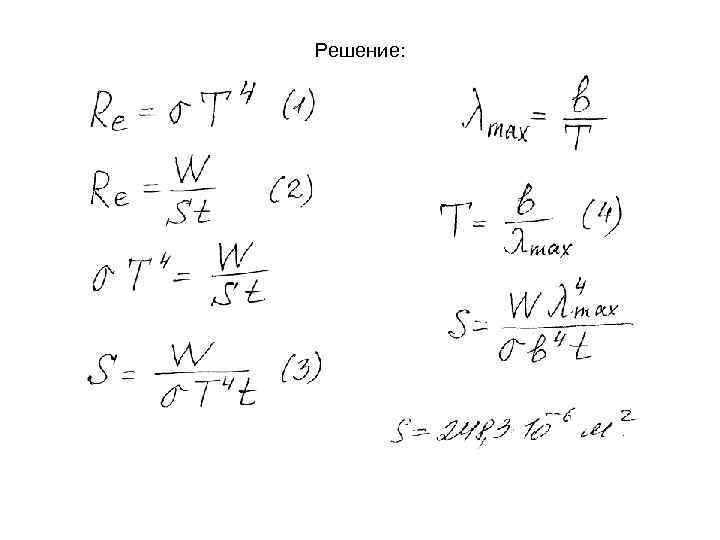 Решение:
Re = σT⁴ (1)
Re = W/St (2)
σT⁴ = W/St
S = W/σT⁴t (3)
λmax = в/T
T = в/λmax (4)
S = Wλ⁴max/σв⁴t
S = 248,3 10⁻⁶ м²